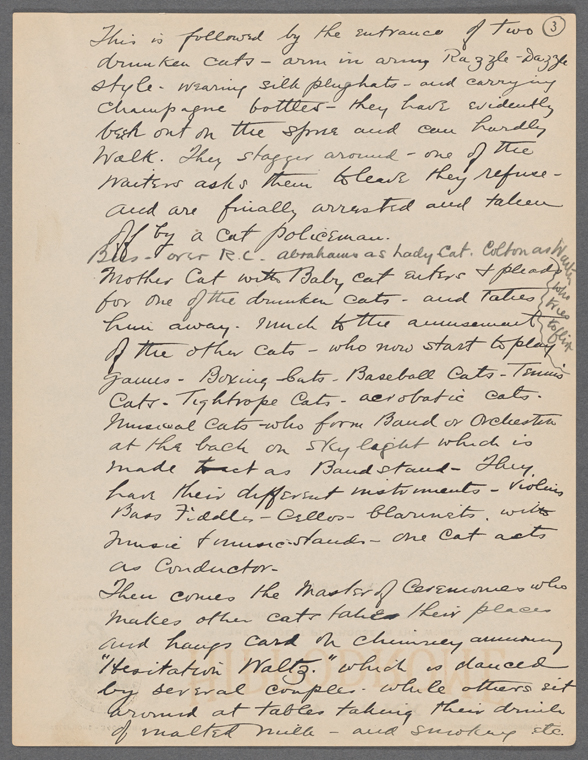 3
This is followed by the entrance of two
drunken cats - arm in arm Razzle-Dazzle
style - wearing silk plughats - and carrying
champagne bottles - they have evidently
been out on the spree and can hardly
walk. They stagger around - one of the
waiters asks them to leave they refuse -
and are finally arrested and taken
off by a cat policeman.
Biz - over R.C. Abrahams as Lady Cat. Colton as Waiter
who
tries
to flirt
Mother Cat with Baby cat enters & pleads
for one of the drunken cats - and takes
him away. Much to the amusement
of the other cats - who now start to play
games - Boxing Cats - Baseball Cats - Tennis
Cats - Tightrope Cats - acrobatic cats -
Musical Cats - who form Band or Orchestra
at the back on skylight which is
made to act as Bandstand - They
have their different instruments - Violins
Bass Fiddles - Cellos - Clarinets. with
music & music-stands - one cat acts
as Conductor -
Then comes the Master of Ceremonies who
makes other cats take their places
and hangs card on chimney announcing
"Hesitation Waltz." which is danced
by several couples. while others sit
around at tables taking their drink
of malted milk - and smoking etc.